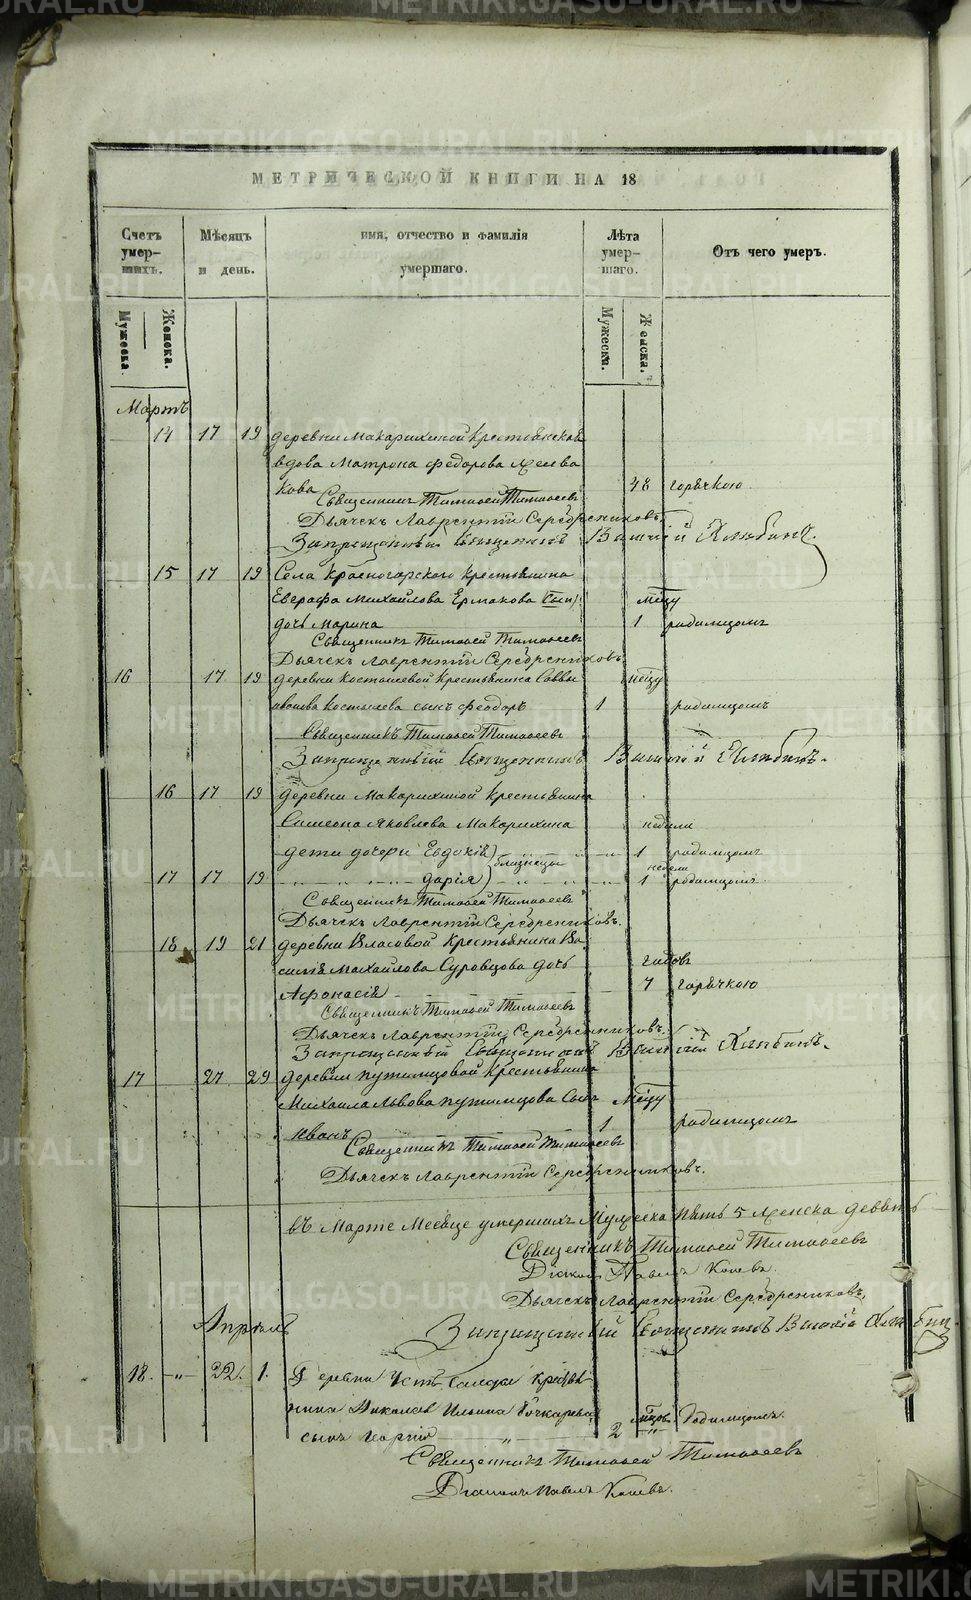 МЕТРИЧЕСКОЙ КНИГИ НА 18
Счетъ умер-шихъ.
Мѣсяцъ и день.
имя, отчество и фамилія умершаго.
Лѣта умер-шаго.
Отъ чего умеръ.
Мужеска.
Женска.
Мужески.
Женска.
Мартъ
14 17 19 деревни Макарихиной крестьянская
вдова Матрона Федорова
кова 48 горячкою
Священникъ Тимофей Тимофеевъ
Дьячекъ Лаврентій Серебренниковъ
Запрещенный Священникъ
15 17 19 Села Красногорскаго крестьянина
Евграфа Михайлова Ермакова мѣсцу
дочь Марина 1 родимцомъ
Священникъ Тимофей Тимофеевъ
Дьячекъ Лаврентій Серебренниковъ
16 17 19 деревни Костылевой крестьянина Саввы
Костылева сынъ Феодоръ 1 родимцомъ
Священникъ Тимофей Тимофеевъ
Запрещенный Священникъ
16 17 19 деревни Макарихиной крестьянина
Симеона Яковлева Макарихина недели
дети дочери Евдокія близнецы 1 родимцомъ
недели
17 17 19 Дарія 1 родимцомъ
Священникъ Тимофей Тимофеевъ
Дьячекъ Лаврентій Серебренниковъ.
18 19 21 деревни Власовой крестьянина Ва
силія Михайлова Суровцова дочь годовъ
Афонасія 7 горячкою
Священникъ Тимофей Тимофеевъ
Дьячекъ Лаврентій Серебренниковъ.
Запрещенный Священникъ
17 27 29 деревни Путимцовой крестьянина
Михаила Львова Путимцова сынъ мѣсцу
Иванъ 1 родимцомъ
Священникъ Тимофей Тимофеевъ
Дьячекъ Лаврентій Серебренниковъ.
въ Марте Месяце умершихъ Мужеска пять 5 женска девять
Священникъ Тимофей Тимофеевъ
Діаконъ Павелъ
Дьячекъ Лаврентій Серебренниковъ,
Апрѣль
Запрещенный Священникъ
18. -„- 22. 1. Деревни Усть кресть
нина Николая Ильина Бочкарева мѣсцовъ
сынъ Георгій „ 2 „ Родимцомъ.
Священникъ Тимофей Тимофеевъ
Діаконъ Павелъ
METRIKI.GASO-URAL.RU